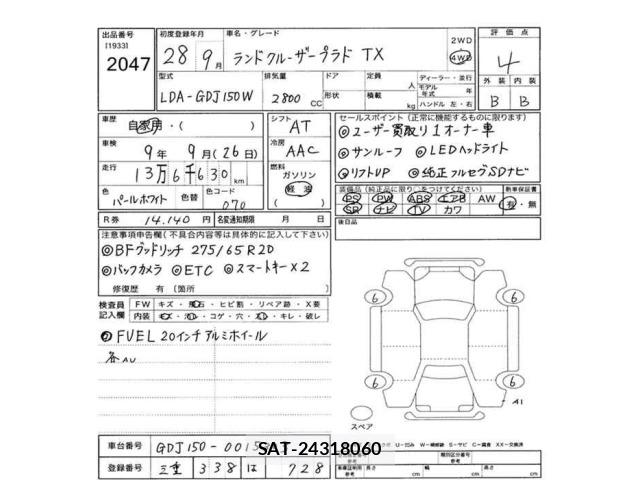 出品番号 初度登録年月 車名・グレード 評価点
[1933]
2047 28年 9月 ランドクルーザープラド TX 2WD 4WD 4
型式 排気量 ドア 定員 ディーラー・並行 外装 内装
LDA-GDJ150W 2800 CC 形状 積載 人 kg モデル年式 年 ハンドル 左・右 B B
車歴 自家用・( ) シフト AT セールスポイント (正常に機能するものに限ります)
◎ユーザー買取り1オーナー車
車検 9年 9月(26日) 冷房 AAC ◎サンルーフ ◎LEDヘッドライト
走行 13万6千630km 燃料 ガソリン 軽油 ( ) ◎リフトUP ◎純正フルセグSDナビ
色 パールホワイト 色替 色コード 070 装備品(純正品に限り○をつけてください) 新車保証書
PS PW ABS エアB AW 有・無
SR ナビ TV カワ
R券 14.140円 名変通知期限 月 日 後日品
注意事項申告欄(不具合内容等は具体的に記入して下さい)
◎BFグッドリッチ 275/65R20
◎バックカメラ ◎ETC ◎スマートキーX2
修復歴 有(箇所
検査員記入欄 FW キズ・飛石・ヒビ割・リペア跡・X要
内装 キズ・汚レ・コゲ・穴・スレ・キレ・破レ
◎FUEL 20インチアルミホイール
6 6
6 6
A1
スペア
車台番号 GDJ150-0015
SAT-24318060
登録番号 三重 338 は 728
類別区分番号
長さ cm 幅 cm 高さ cm